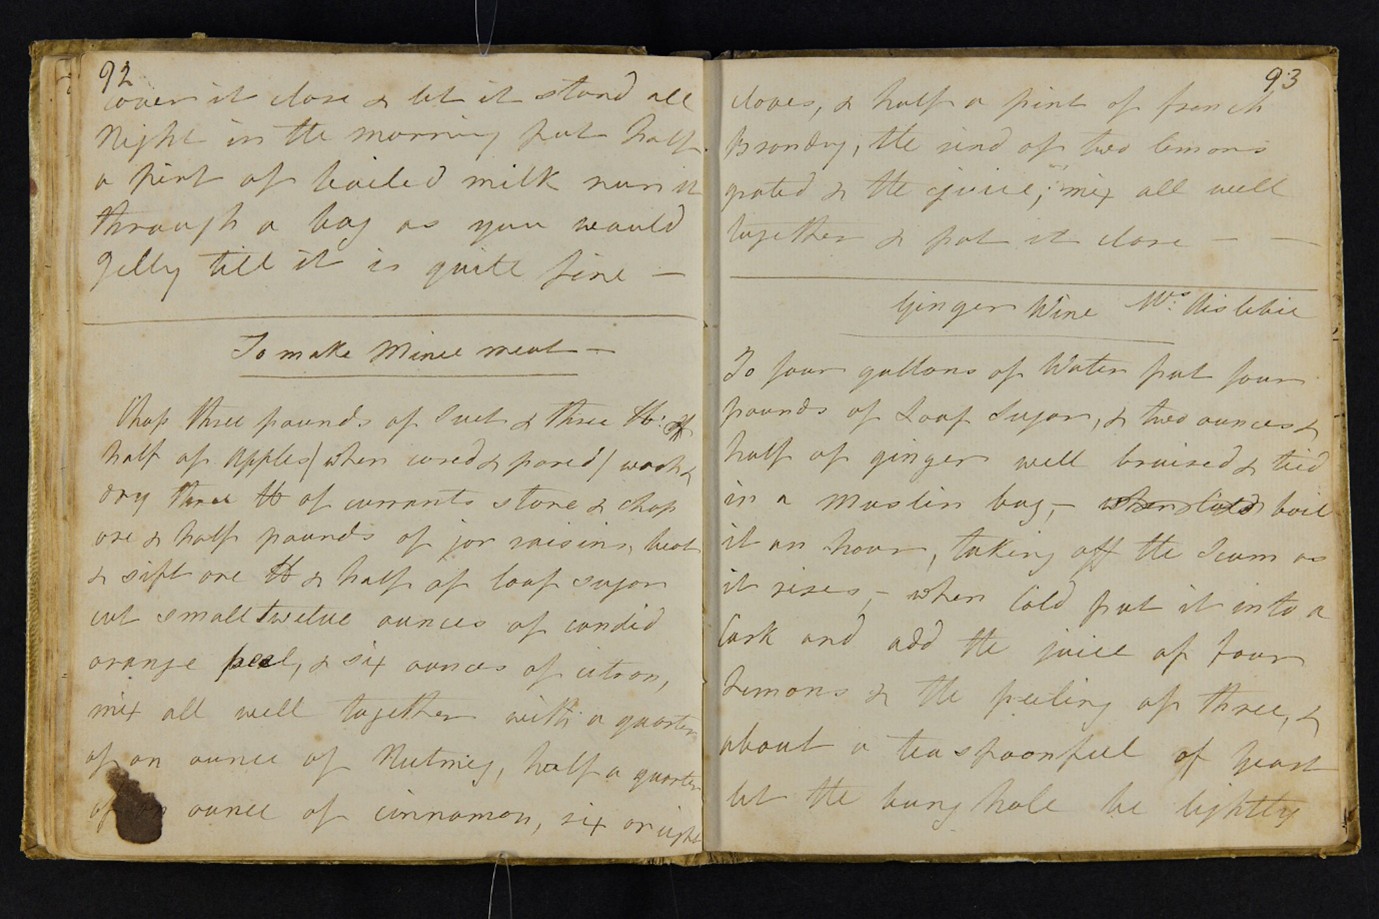 92
cover it close & let it stand all
Night in the morning put half
a pint of boiled milk run it
through a bag as you would
Jelly till it is quite fine —
To make Mince meat —
Chop three pounds of Suet & three lb: &
half of Apples / when cored & pared / wash &
dry three lb of currants stone & chop
one & half pounds of jar raisins, beat
& sift one lb & half of loaf sugar
cut small twelve ounces of candid
orange peel, & six ounces of citron,
mix all well together with a quarter
of an ounce of Nutmeg, half a quarter
of an ounce of cinnamon, six or eight
93
cloves, & half a pint of french
Brandy, the rind of two lemons
grated & the juice, mix all well
together & put it close — —
Ginger Wine Mrs:
To four gallons of Water put four
pounds of Loaf Sugar, & two ounces &
half of ginger well bruised & tied
in a Muslin bag, — boil
it an hour, taking off the Scum as
it rises, — when Cold put it into a
Cask and add the juice of four
Lemons & the peeling of three, &
about a teaspoonfull of yeast
let the bung hole be lightly